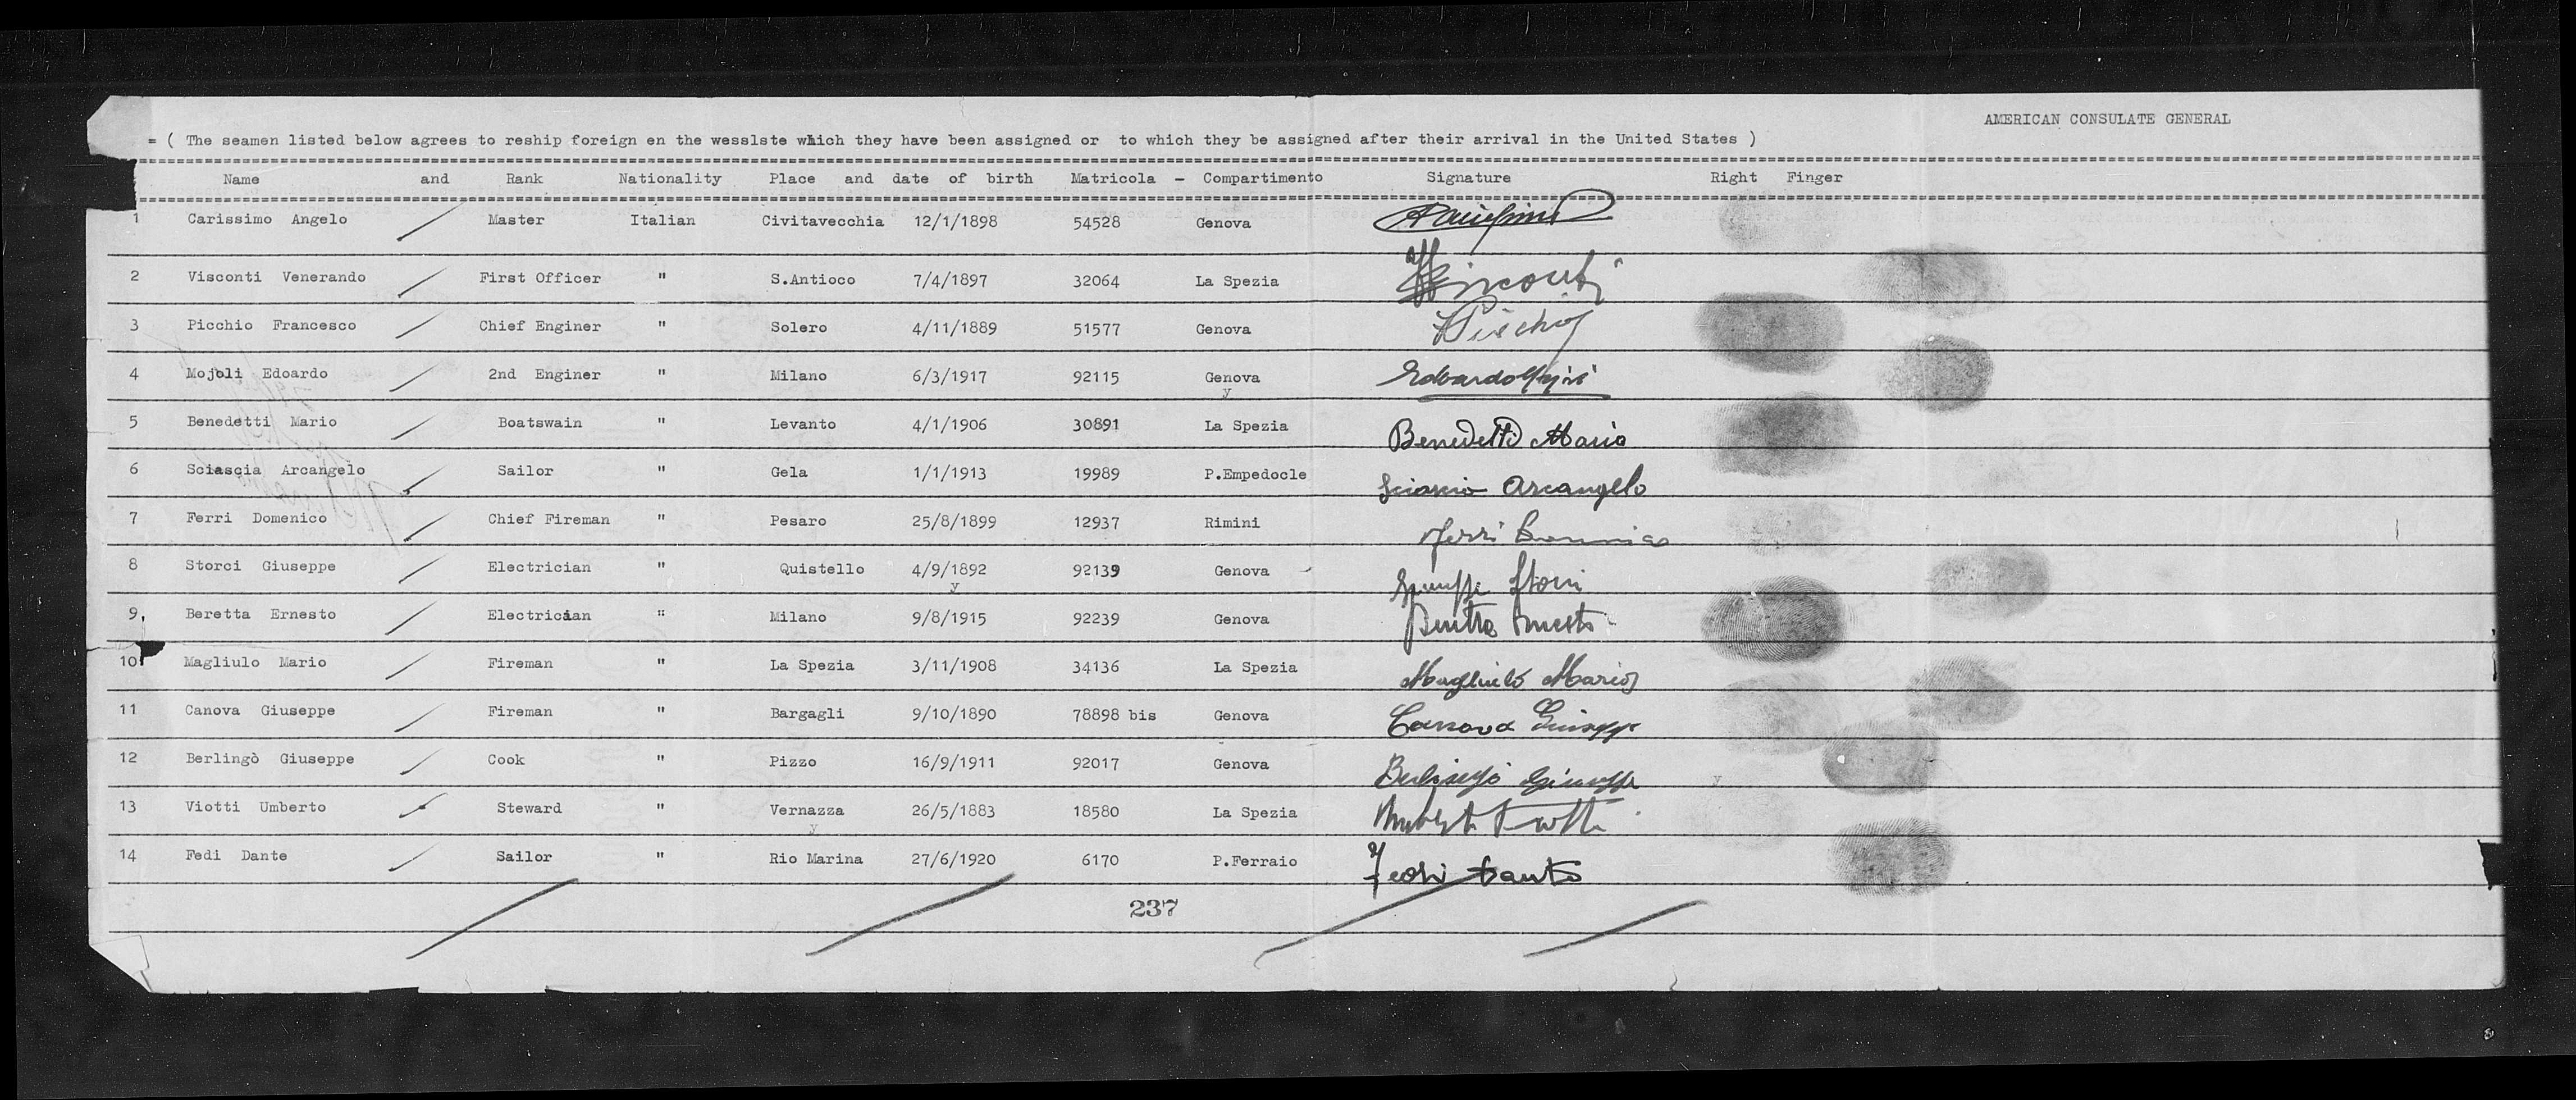 AMERICAN CONSULATE GENERAL
= ( The seamen listed below agrees to reship foreign en the wesslste which they have been assigned or to which they be assigned after their arrival in the United States )
Name and Rank Nationality Place and date of birth Matricola - Compartimento Signature Right Finger
1 Carissimo Angelo Master Italian Civitavecchia 12/1/1898 54528 Genova
2 Visconti Venerando First Officer " S.Antioco 7/4/1897 32064 La Spezia Visconti
3 Picchio Francesco Chief Enginer " Solero 4/11/1889 51577 Genova
4 Mojoli Edoardo 2nd Enginer " Milano 6/3/1917 92115 Genova Edoardo
y
5 Benedetti Mario Boatswain " Levanto 4/1/1906 30891 La Spezia Benedetti Mario
6 Sciascia Arcangelo Sailor " Gela 1/1/1913 19989 P.Empedocle Sciascia Arcangelo
7 Ferri Domenico Chief Fireman " Pesaro 25/8/1899 12937 Rimini Ferri
8 Storci Giuseppe Electrician " Quistello 4/9/1892 92139 Genova Giuseppe Storci
y
9, Beretta Ernesto Electrician " Milano 9/8/1915 92239 Genova Beretta Ernesto
10 Magliulo Mario Fireman " La Spezia 3/11/1908 34136 La Spezia Magliulo Mario
11 Canova Giuseppe Fireman " Bargagli 9/10/1890 78898 bis Genova Canova Giuseppe
12 Berlingò Giuseppe Cook " Pizzo 16/9/1911 92017 Genova Berlingò Giuseppe y
13 Viotti Umberto Steward " Vernazza 26/5/1883 18580 La Spezia Umberto Viotti
y
14 Fedi Dante Sailor " Rio Marina 27/6/1920 6170 P.Ferraio Fedi Dante
237